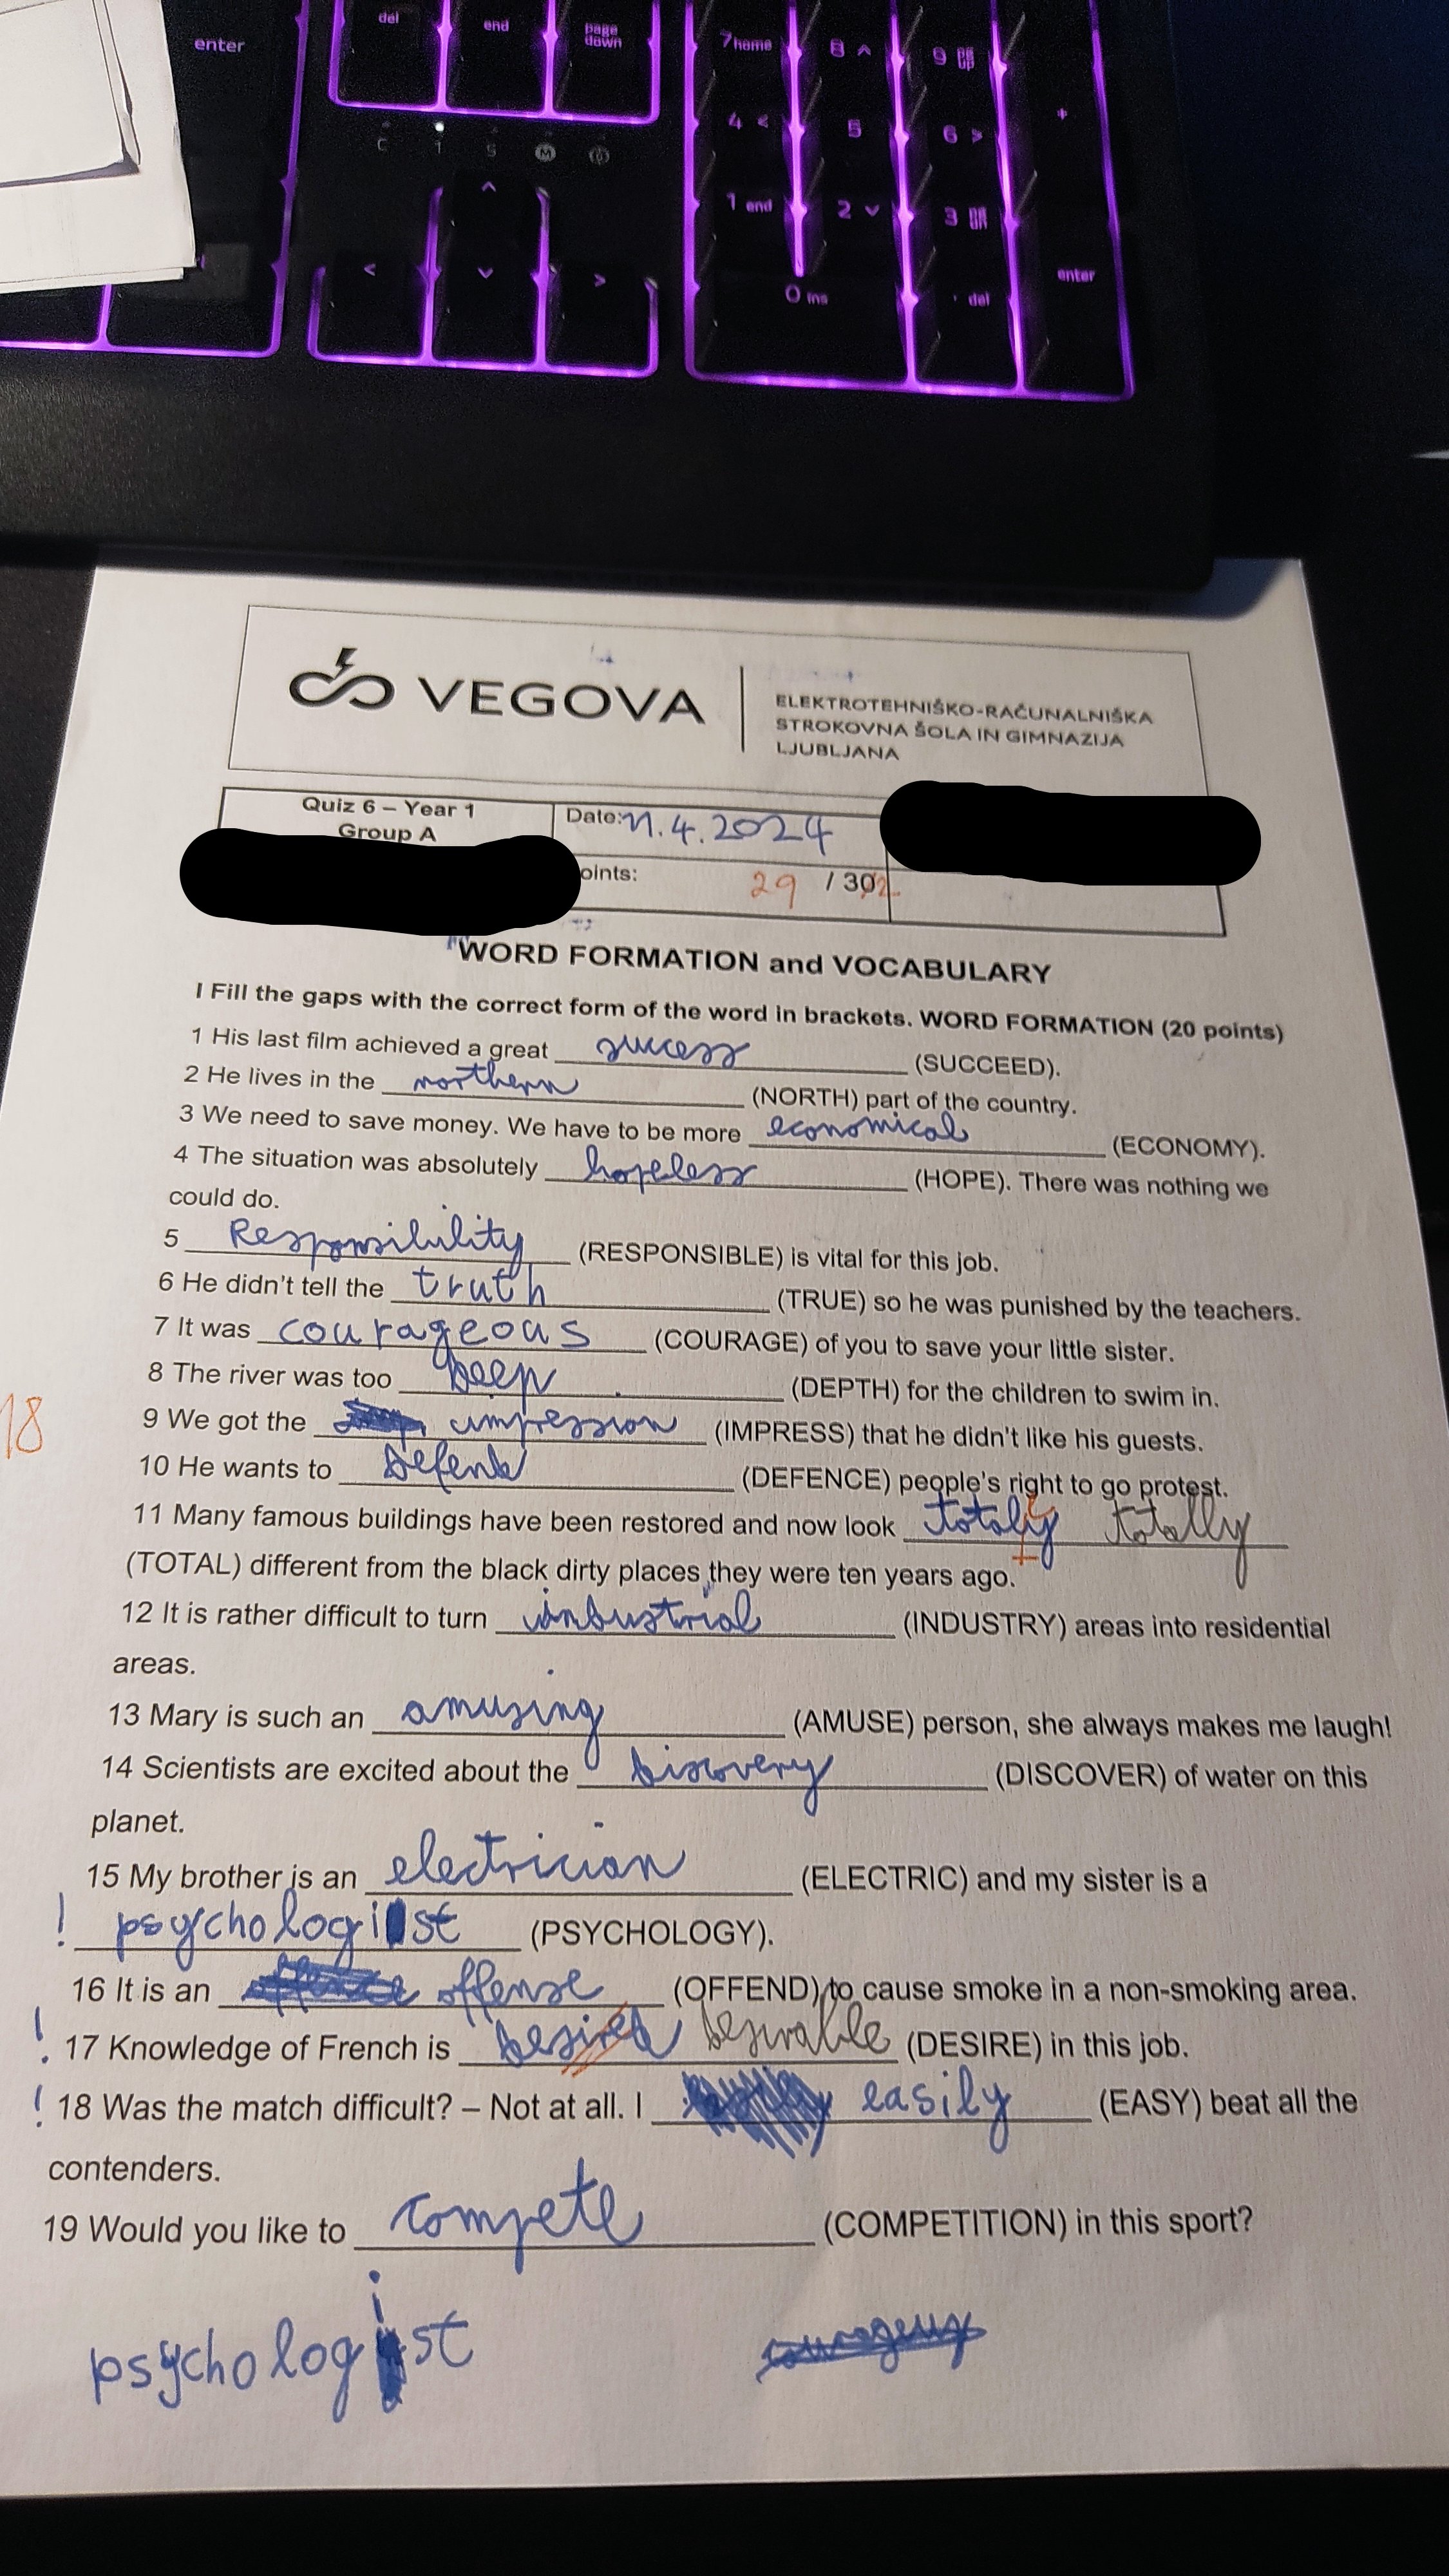 del end page down 7 home 8 9 pg up
enter
4 < 5 6 > +
C 1 S M
1 end 2 3 pg dn
< > 0 ins . del enter
VEGOVA
ELEKTROTEHNIŠKO-RAČUNALNIŠKA
STROKOVNA ŠOLA IN GIMNAZIJA
LJUBLJANA
Quiz 6 – Year 1
Group A
Date: 11.4.2024
oints: 29 / 30
WORD FORMATION and VOCABULARY
I Fill the gaps with the correct form of the word in brackets. WORD FORMATION (20 points)
1 His last film achieved a great success (SUCCEED).
2 He lives in the northern (NORTH) part of the country.
3 We need to save money. We have to be more economical (ECONOMY).
4 The situation was absolutely hopeless (HOPE). There was nothing we
could do.
5 Responsibility (RESPONSIBLE) is vital for this job.
6 He didn't tell the truth (TRUE) so he was punished by the teachers.
7 It was courageous (COURAGE) of you to save your little sister.
8 The river was too deep (DEPTH) for the children to swim in.
18
9 We got the impression (IMPRESS) that he didn't like his guests.
10 He wants to defend (DEFENCE) people's right to go protest.
11 Many famous buildings have been restored and now look totaly totally
(TOTAL) different from the black dirty places they were ten years ago.
12 It is rather difficult to turn industrial (INDUSTRY) areas into residential
areas.
13 Mary is such an amusing (AMUSE) person, she always makes me laugh!
14 Scientists are excited about the discovery (DISCOVER) of water on this
planet.
15 My brother is an electrician (ELECTRIC) and my sister is a
! psychologist (PSYCHOLOGY).
16 It is an offense (OFFEND) to cause smoke in a non-smoking area.
! 17 Knowledge of French is desired desirable (DESIRE) in this job.
! 18 Was the match difficult? – Not at all. I easily (EASY) beat all the
contenders.
19 Would you like to compete (COMPETITION) in this sport?
psychologist